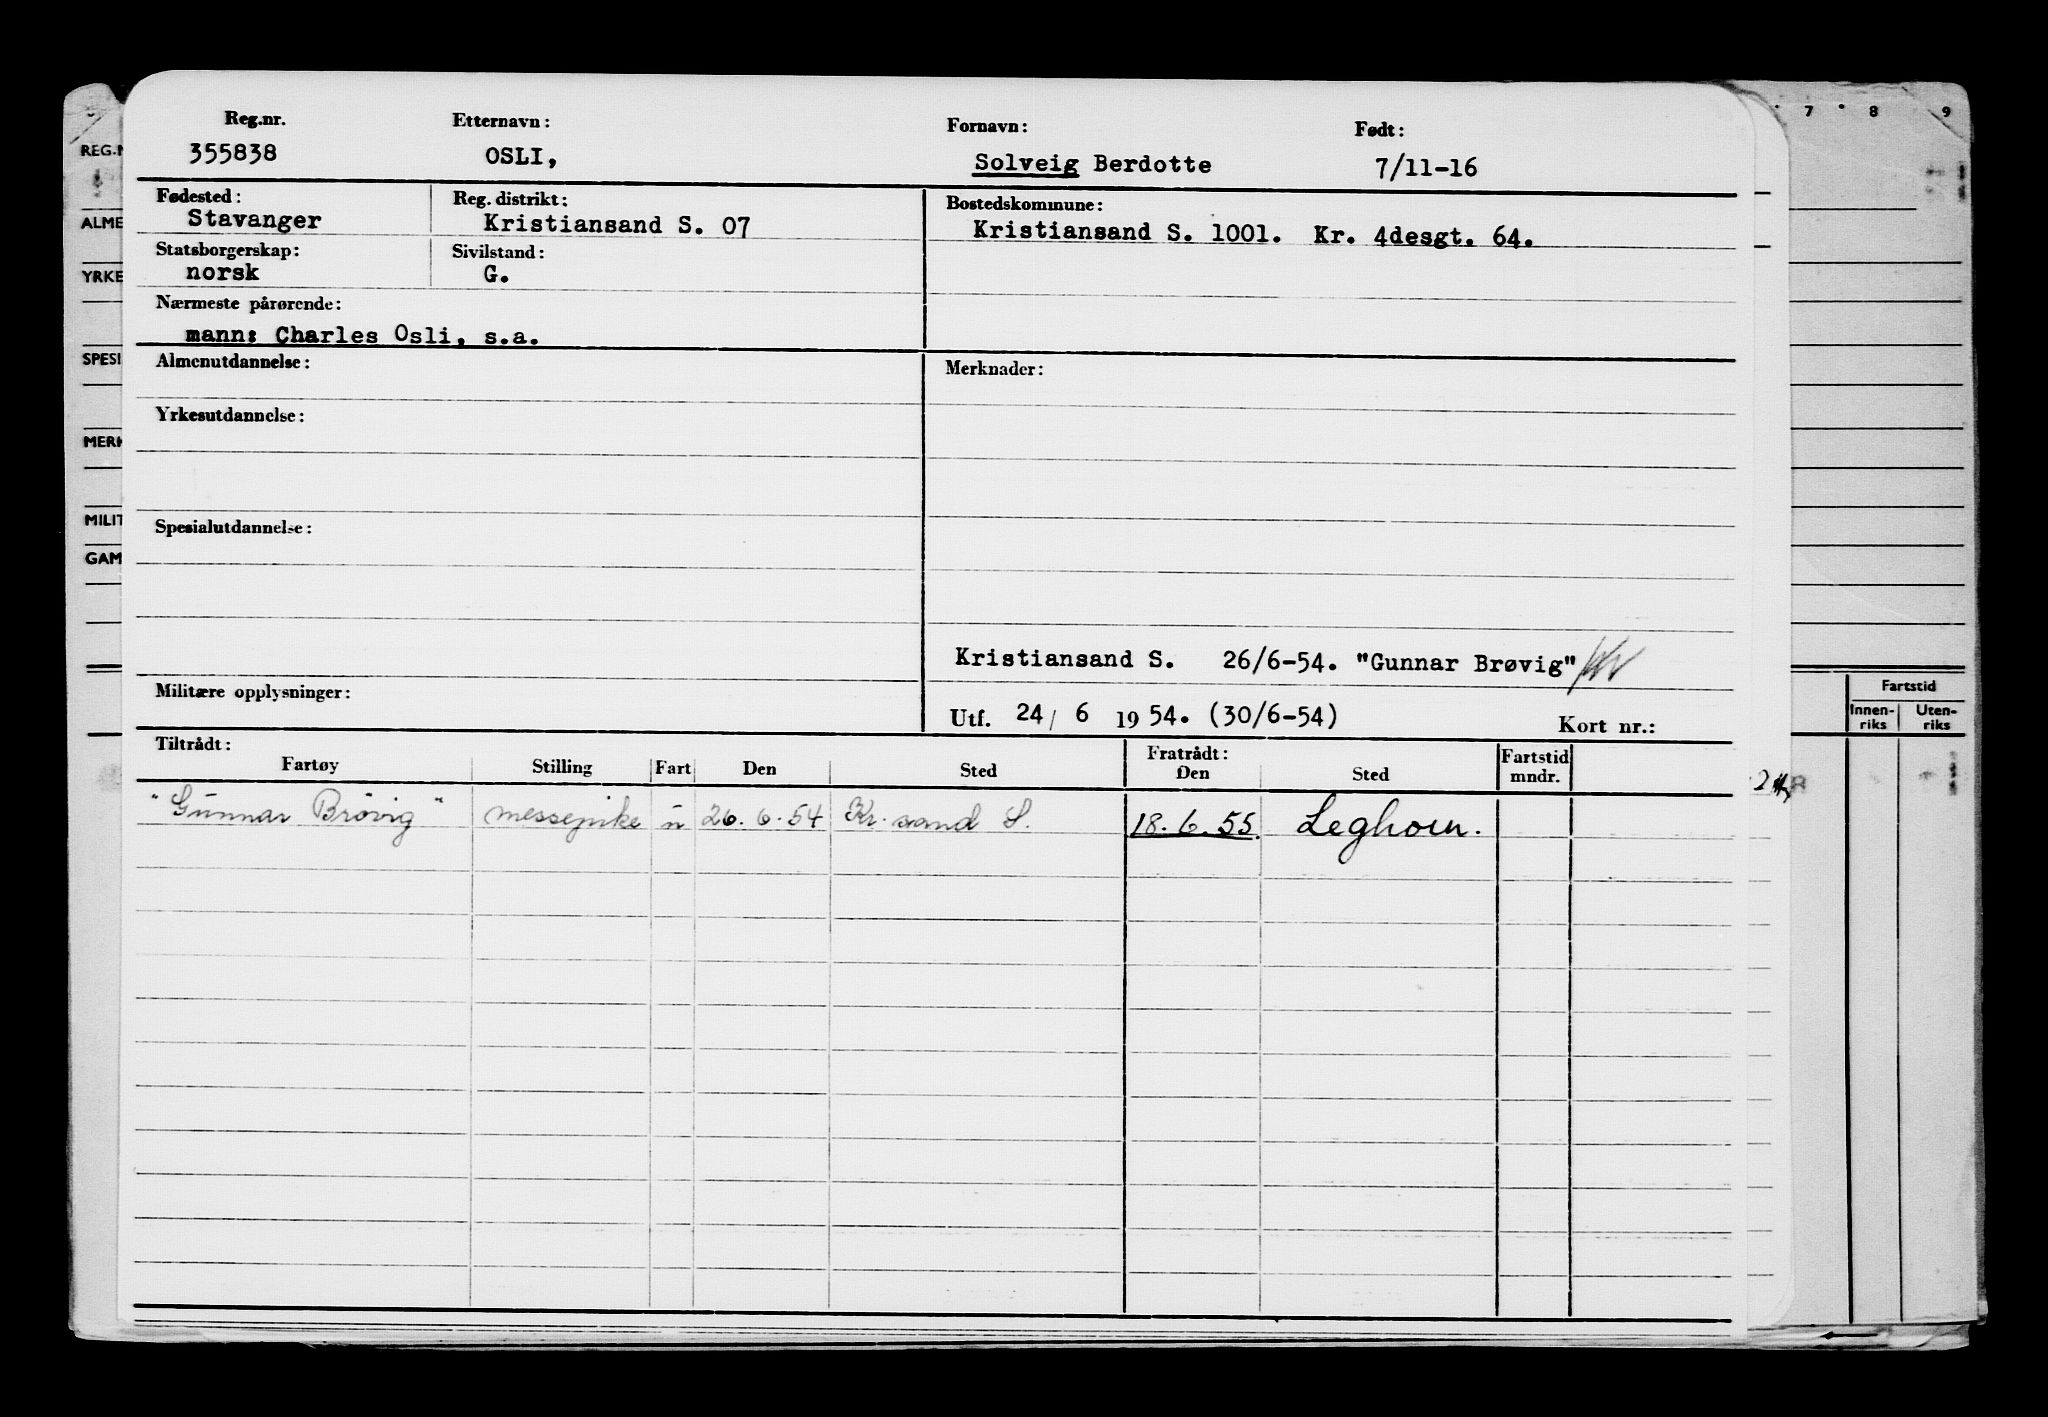 Reg.nr. Etternavn: Fornavn: Født:
355838 OSLI, Solveig Berdotte 7/11-16
Fødested: Reg. distrikt: Bostedskommune:
Stavanger Kristiansand S. 07 Kristiansand S. 1001. Kr. 4desgt. 64.
Statsborgerskap: Sivilstand:
norsk G.
Nærmeste pårørende:
mann: Charles Osli, s.a.
Almenutdannelse: Merknader:
Yrkesutdannelse:
Spesialutdannelse:
Kristiansand S. 26/6-54. "Gunnar Brøvig"
Militære opplysninger:
Utf. 24/ 6 1954. (30/6-54) Kort nr.:
Tiltrådt: Fratrådt: Fartstid
Fartøy Stilling Fart Den Sted Den Sted mndr.
"Gunnar Brøvig" messepike u 26.6.54 Kr.sand S. 18.6.55. Leghorn.
7 8 9
REG.N
ALME
YRKE
SPESI
MERK
MILIT
GAM
Fartstid
Innen- Uten-
riks riks